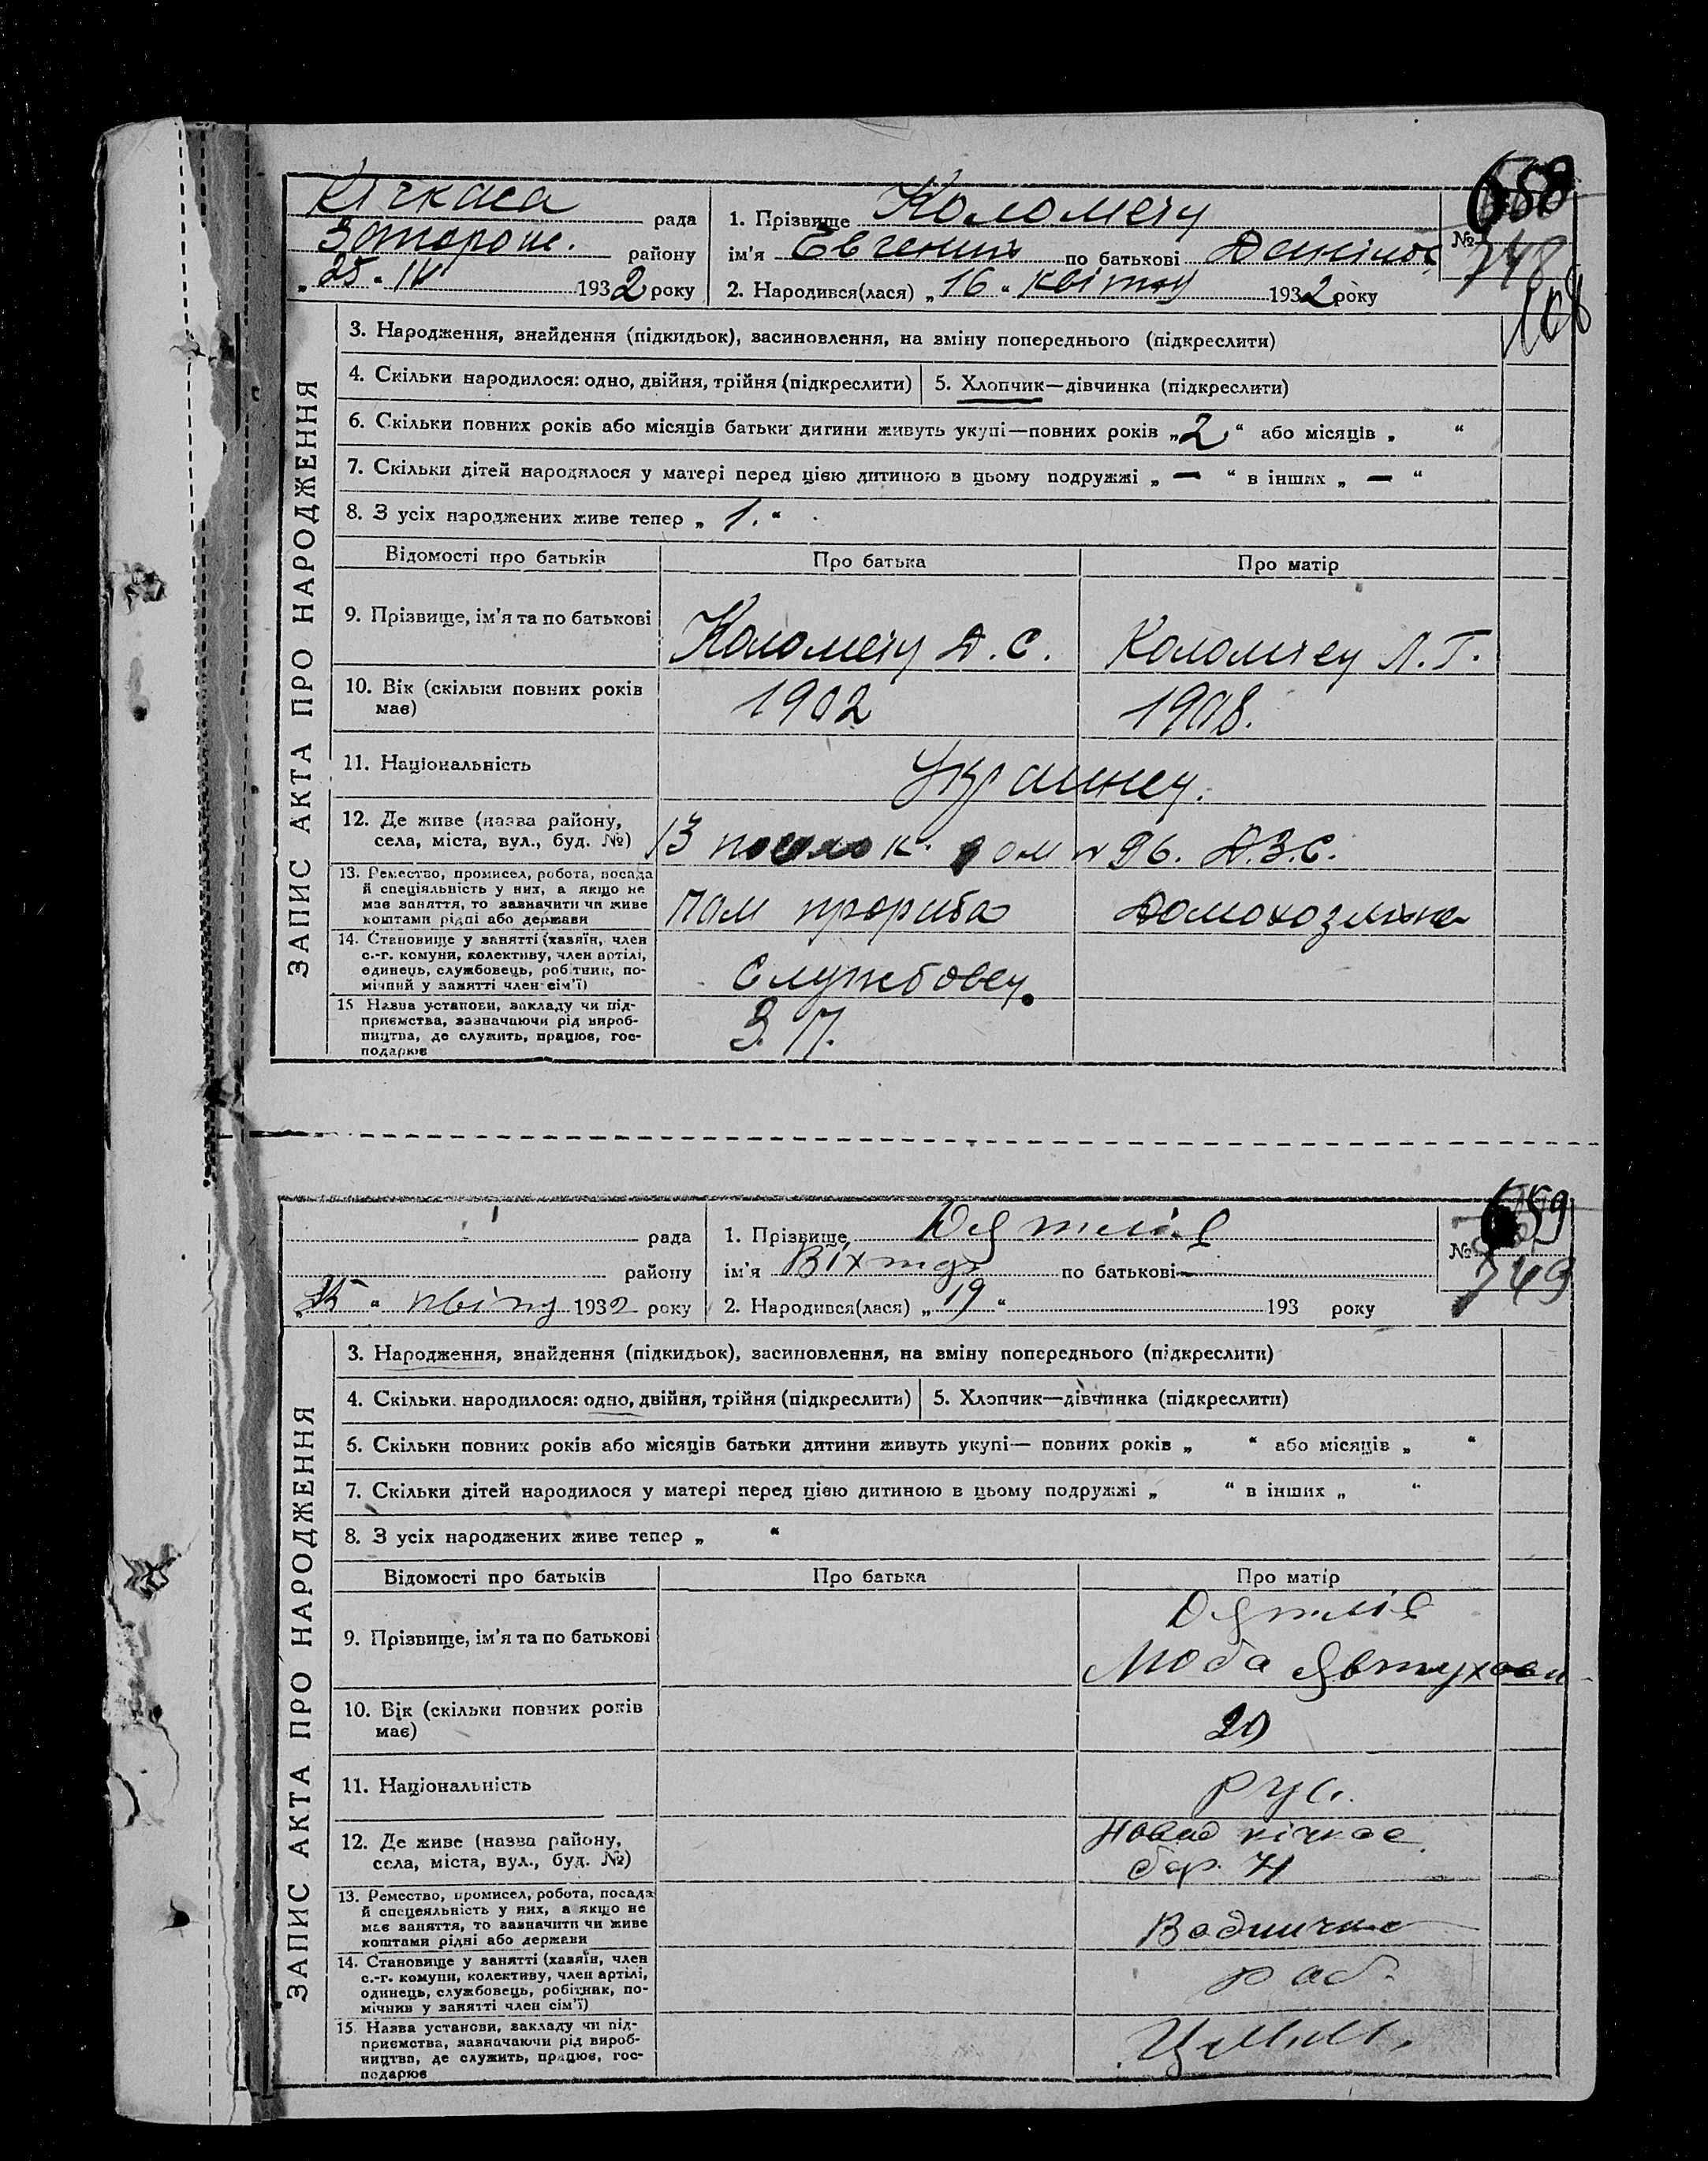 ЗАПИС АКТА ПРО НАРОДЖЕННЯ
Кічкаса рада
Запорож. району
„25“ IV 1932 року
1. Прізвище Коломеіц
ім'я Евгений по батькові Данилов
2. Народився(лася) „16“ квітня 1932 року
№ 658
748
108
3. Народження, знайдення (підкидьок), засиновлення, на зміну попереднього (підкреслити)
4. Скільки народилося: одно, двійня, трійня (підкреслити)
5. Хлопчик—дівчинка (підкреслити)
6. Скільки повних років або місяців батьки дитини живуть укупі—повних років „2“ або місяців „ “
7. Скільки дітей народилося у матері перед цією дитиною в цьому подружжі „—“ в інших „—“
8. З усіх народжених живе тепер „1.“
Відомості про батьків Про батька Про матір
9. Прізвище, ім'я та по батькові Коломеіц Д.С. Коломіец Л.Г.
10. Вік (скільки повних років має) 1902 1908.
11. Національність Украинец.
12. Де живе (назва району, села, міста, вул., буд. №) 13 поселок. дом № 96. Д.З.С.
13. Ремество, промисел, робота, посада
й спеціяльність у них, а якщо не
має заняття, то зазначити чи живе
коштами рідні або держави
пом прораба Домохозяйка
14. Становище у занятті (хазяїн, член
с.-г. комуни, колективу, член артілі,
одинець, службовець, робітник, по-
мічний у занятті член сім'ї)
Службовец.
15 Назва установи, закладу чи під-
приємства, зазначаючи рід вироб-
ництва, де служить, працює, гос-
подарює
З. П.
ЗАПИС АКТА ПРО НАРОДЖЕННЯ
рада
району
„25“ квітня 1932 року
1. Прізвище
ім'я Віхтор по батькові —
2. Народився(лася) „19“ 193 року
№ 659
749
3. Народження, знайдення (підкидьок), засиновлення, на зміну попереднього (підкреслити)
4. Скільки народилося: одно, двійня, трійня (підкреслити)
5. Хлопчик—дівчинка (підкреслити)
6. Скільки повних років або місяців батьки дитини живуть укупі— повних років „ “ або місяців „ “
7. Скільки дітей народилося у матері перед цією дитиною в цьому подружжі „ “ в інших „ “
8. З усіх народжених живе тепер „ “
Відомості про батьків Про батька Про матір
9. Прізвище, ім'я та по батькові
10. Вік (скільки повних років має) 20
11. Національність рус.
12. Де живе (назва району, села, міста, вул., буд. №) Новий кічкас
бар. 71
13. Ремество, промисел, робота, посада
й спецеяльність у них, а якщо не
має заняття, то зазначити чи живе
коштами рідні або держави
14. Становище у занятті (хазяїн, член
с.-г. комуни, колективу, член артілі,
одинець, службовець, робітник, по-
мічний у занятті член сім'ї)
раб.
15. Назва установи, закладу чи під-
приємства, зазначаючи рід вироб-
ництва, де служить, працює, гос-
подарює